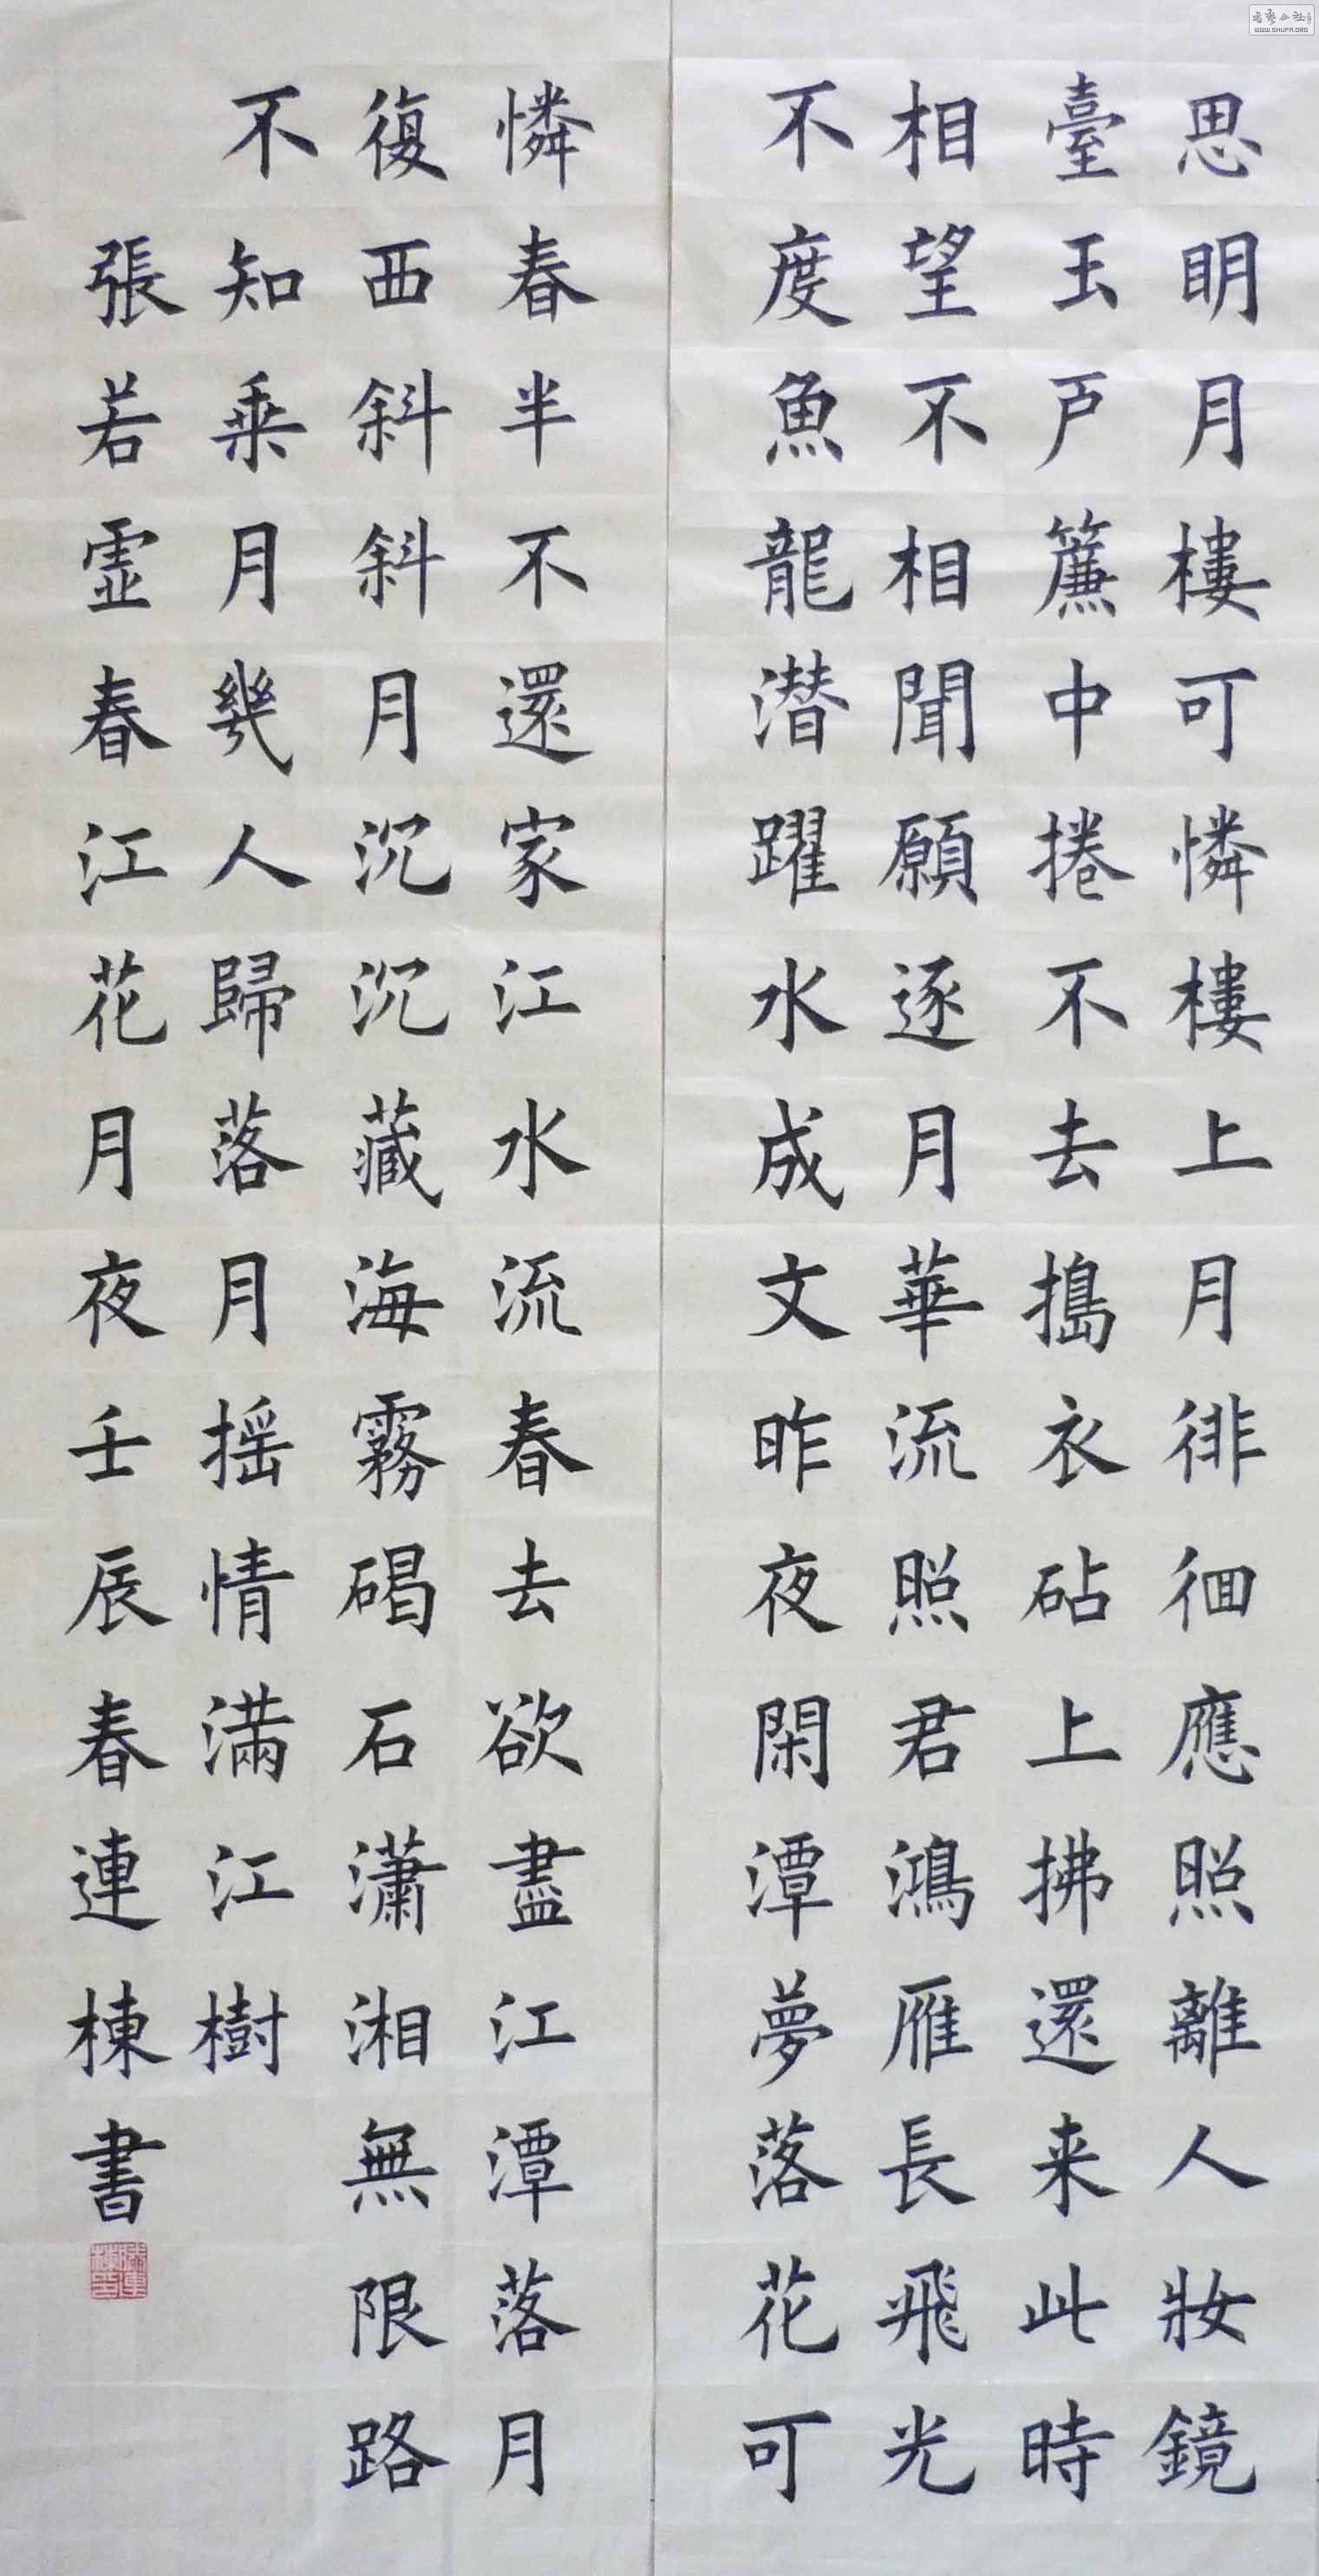 思明月樓可憐樓上月徘徊應照離人妝鏡
臺玉戶簾中捲不去搗衣砧上拂還来此時
相望不相聞願逐月華流照君鴻雁長飛光
不度魚龍潛躍水成文昨夜閑潭夢落花可
憐春半不還家江水流春去欲盡江潭落月
復西斜斜月沉沉藏海霧碣石瀟湘無限路
不知乘月幾人歸落月摇情滿江樹
張若虛春江花月夜壬辰春連棟書
WWW.SHUFA.ORG